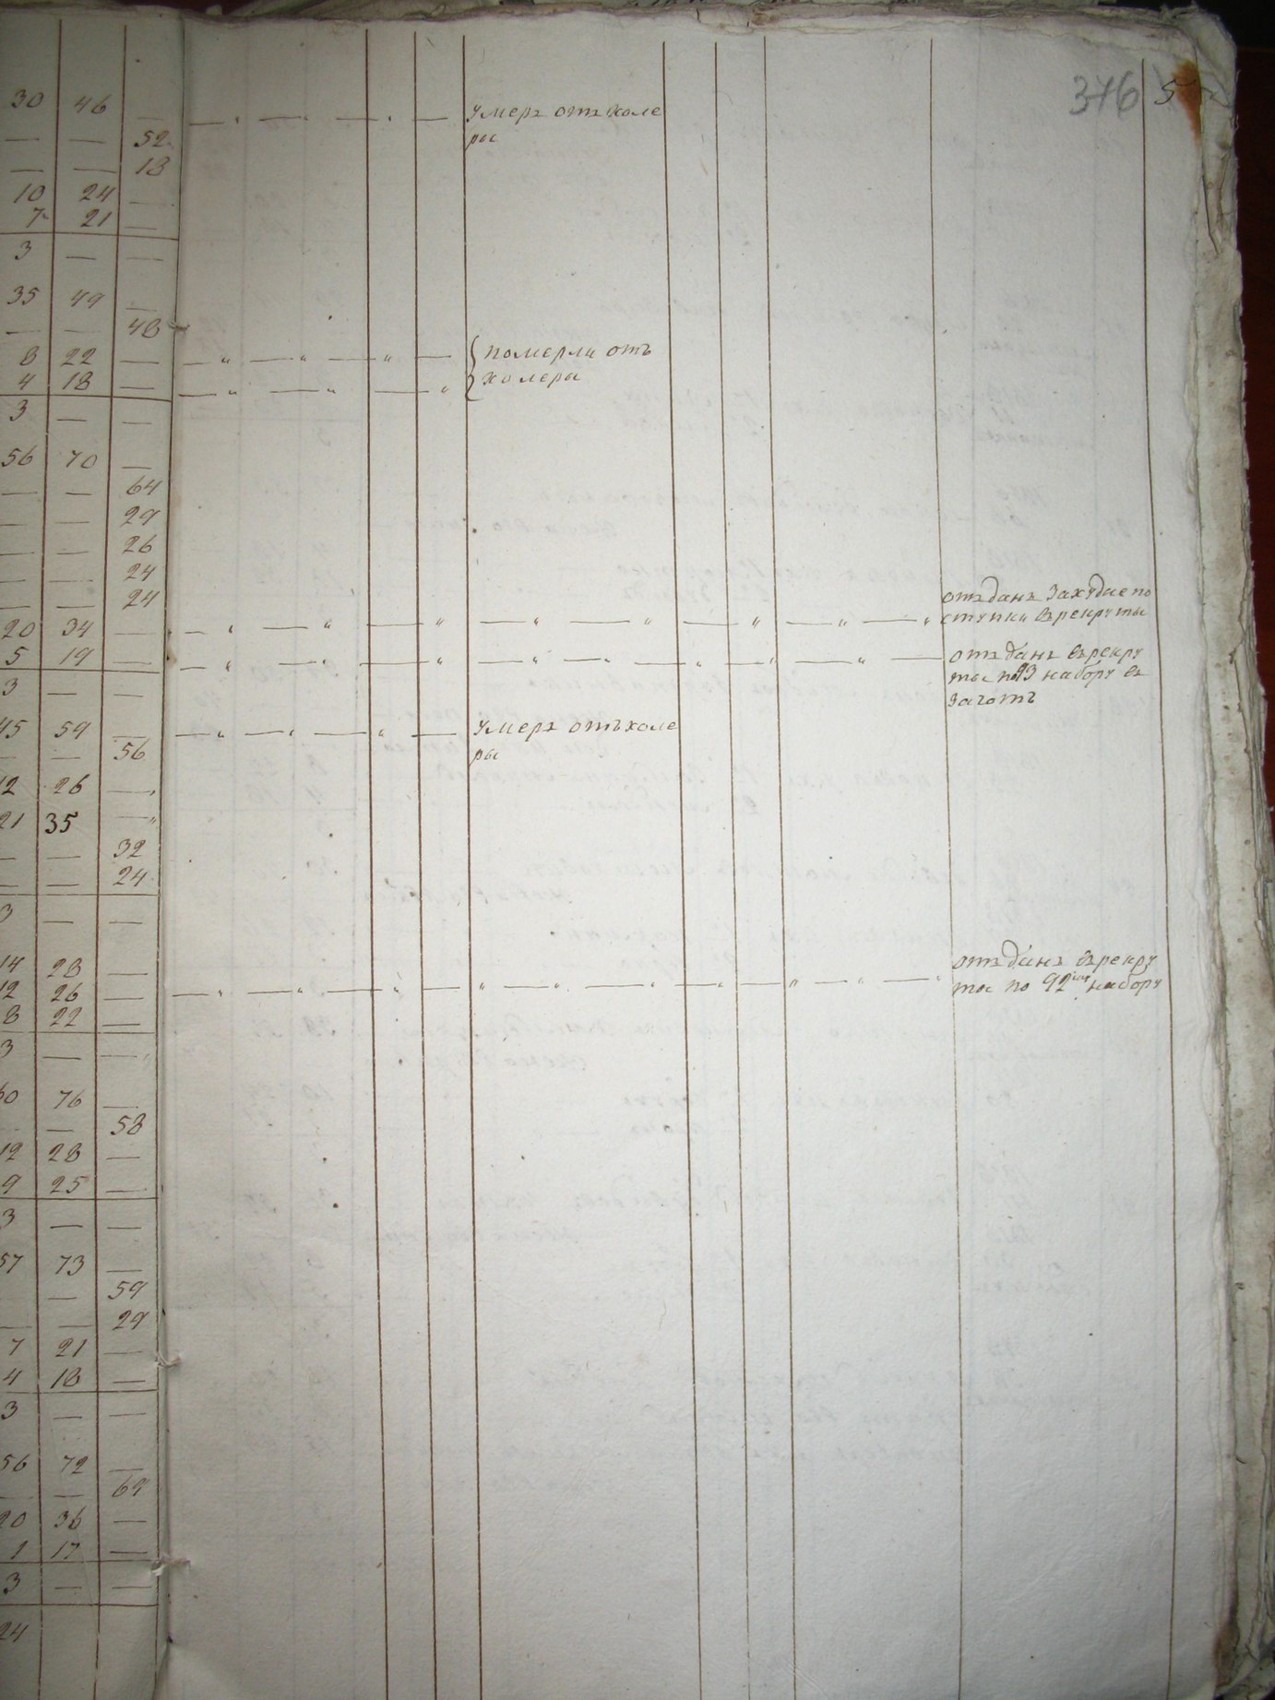 376 5
30 46 —
умеръ отъ холе
ры
— — 52
— — 18
10 24 —
7 21 —
3 — —
35 49 —
— — 48
8 22 —
померли отъ
4 18 —
холеры
3 — —
56 70 —
— — 64
— — 29
— — 26
— — 24
— — 24
отъданъ захудые по
20 34 —
ступки въ рекруты
5 19 —
отъданъ въ рекру
3 — —
ты по 93 набору въ
зачотъ
45 59 —
умеръ отъ холе
— — 56
ры
12 26 —
21 35 —
— — 32
— — 24
3 — —
14 28 —
отъданъ въ рекру
12 26 —
ты по 92 набору
8 22 —
3 — —
60 76 —
— — 58
12 28 —
9 25 —
3 — —
57 73 —
— — 59
— — 29
7 21 —
4 18 —
3 — —
56 72 —
— — 69
20 36 —
1 17 —
3 — —
24